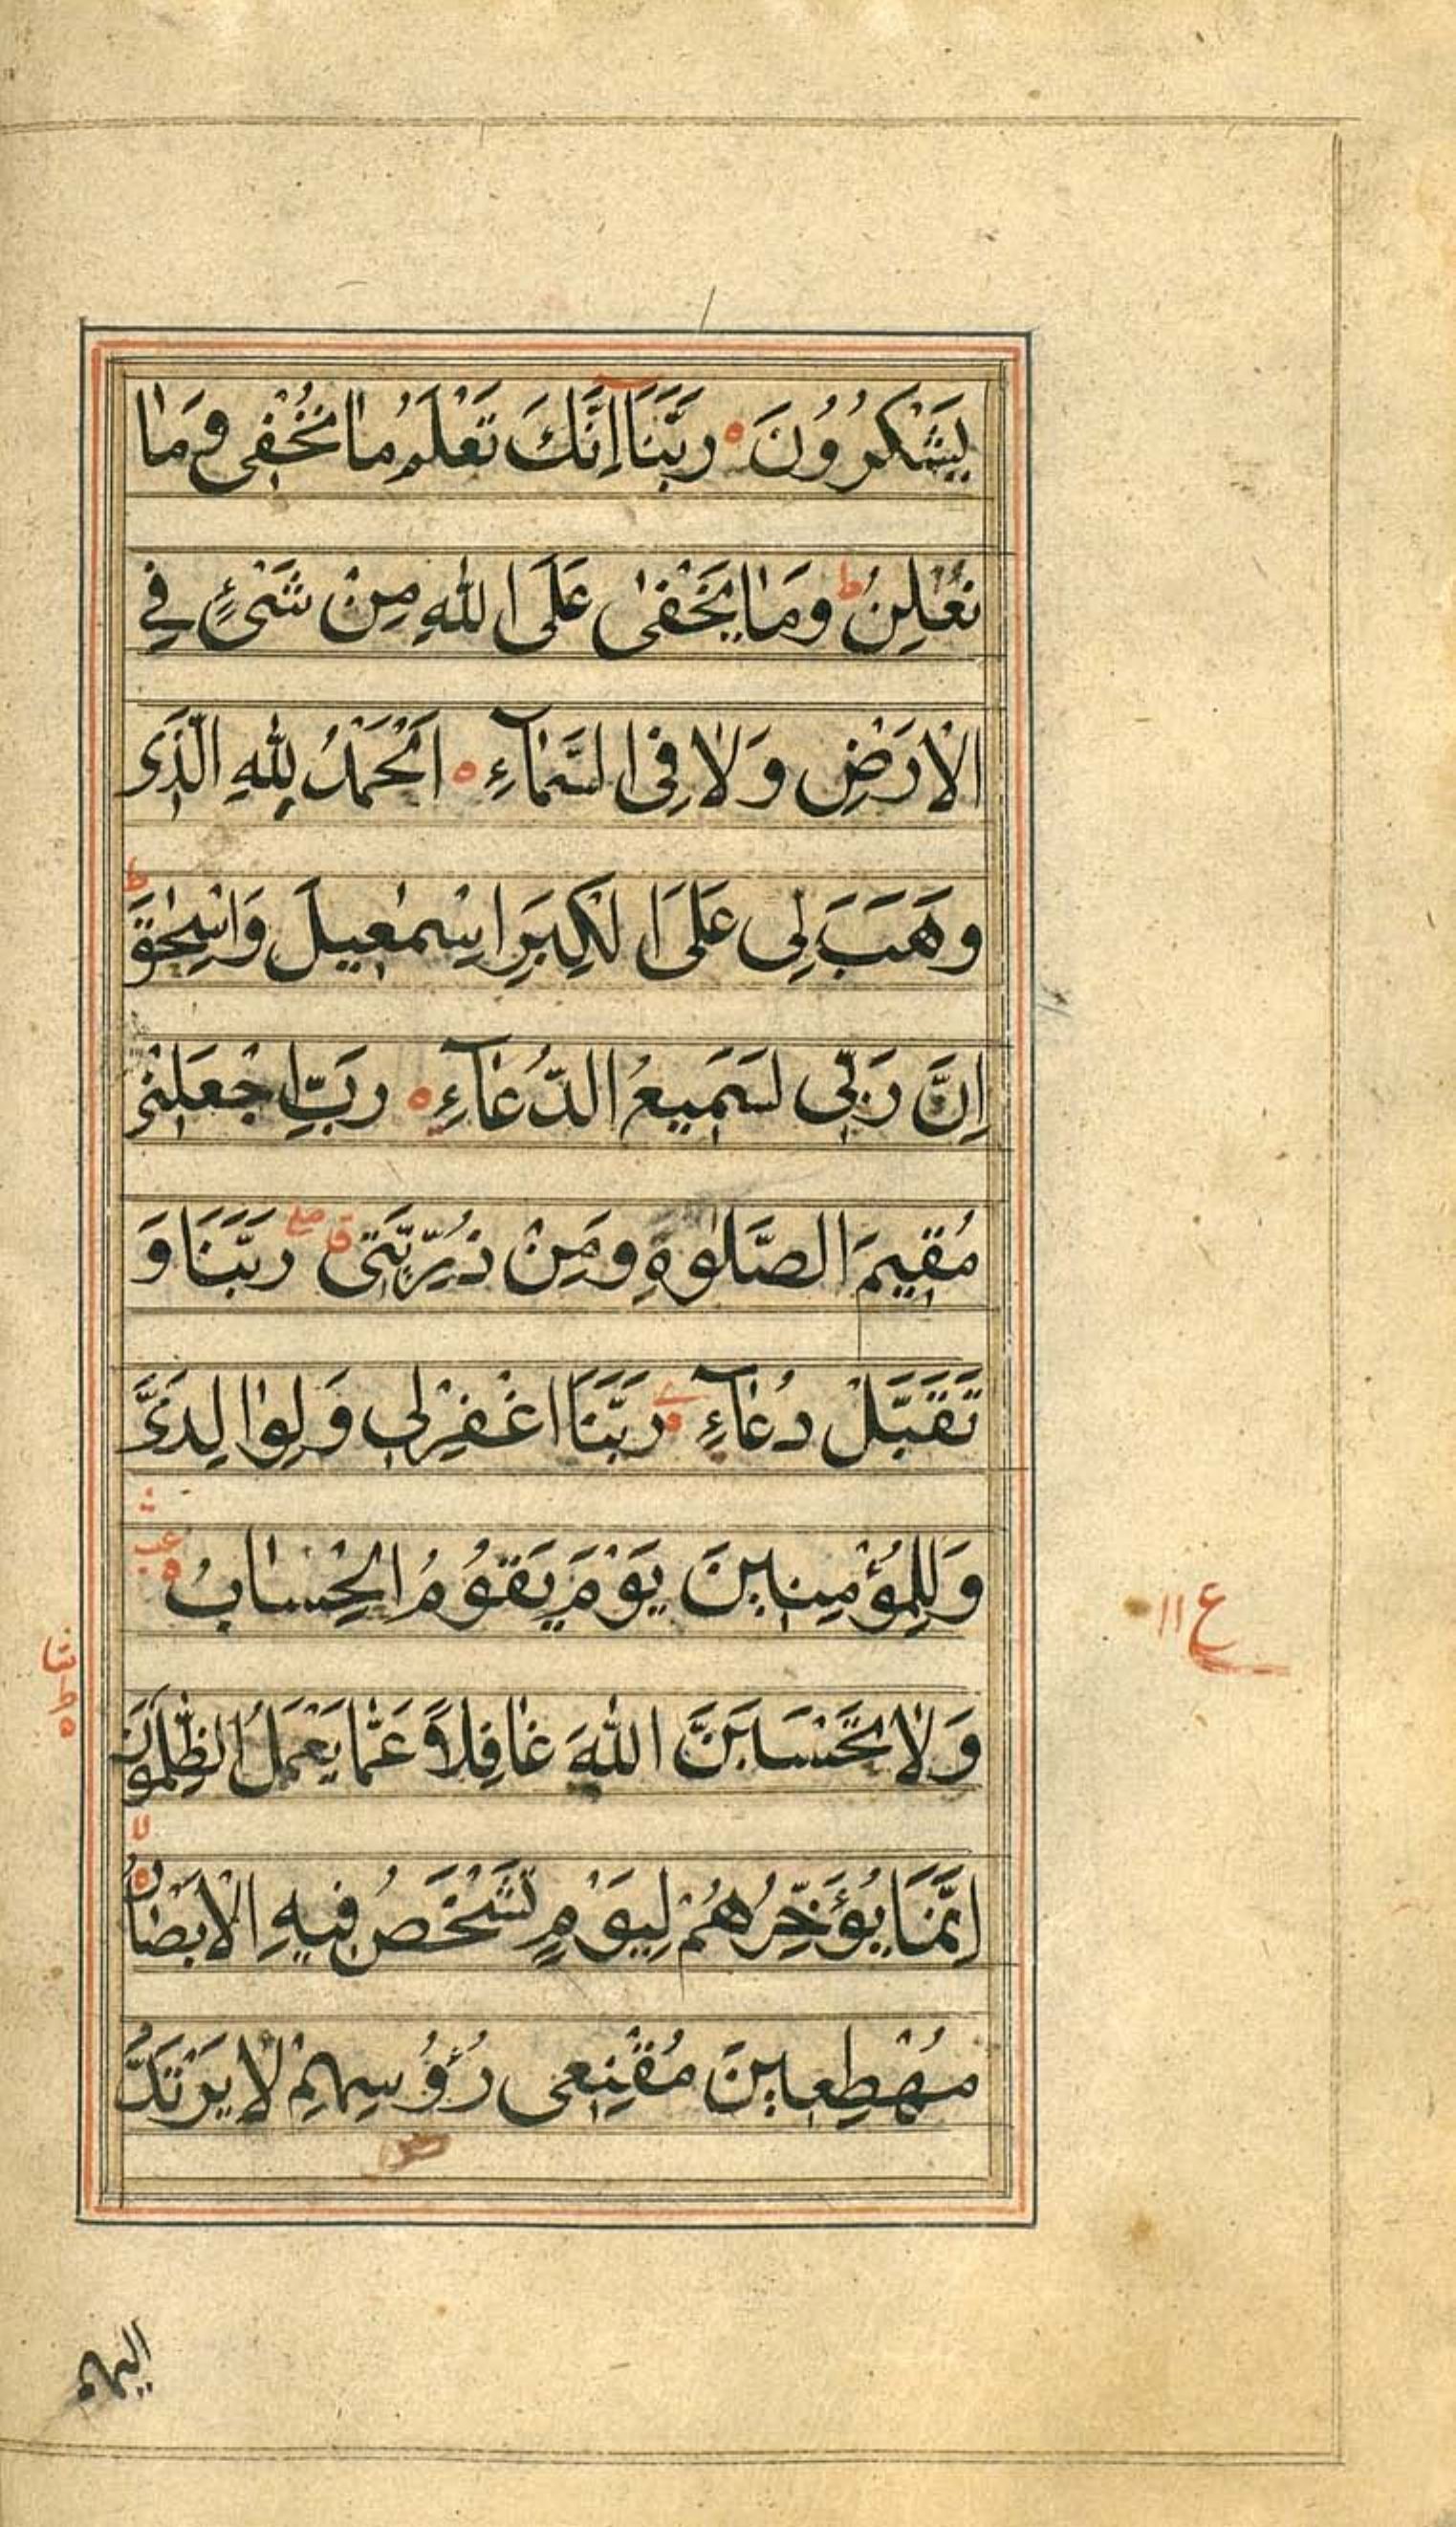 يَشْكُرُوْنَ ۝ رَبَّنَآ اِنَّكَ تَعْلَمُ مَا نُخْفِى وَمَا
نُعْلِنُ ؕ وَمَا يَخْفٰى عَلَى اللّٰهِ مِنْ شَىْءٍ فِى
الْاَرْضِ وَلَا فِى السَّمَآءِ ۝ اَلْحَمْدُ لِلّٰهِ الَّذِى
وَهَبَ لِى عَلَى الْكِبَرِ اِسْمٰعِيلَ وَاِسْحٰقَ ؕ
اِنَّ رَبِّى لَسَمِيعُ الدُّعَآءِ ۝ رَبِّ اجْعَلْنِى
مُقِيمَ الصَّلٰوةِ وَمِنْ ذُرِّيَّتِى ق صلى رَبَّنَا وَ
تَقَبَّلْ دُعَآءِ ۝ رَبَّنَا اغْفِرْلِى وَلِوَالِدَىَّ
وَلِلْمُؤْمِنِينَ يَوْمَ يَقُوْمُ الْحِسَابُ ۝ عب
ع ١١
وَلَا تَحْسَبَنَّ اللّٰهَ غَافِلًا عَمَّا يَعْمَلُ الظّٰلِمُوْنَ ط ۝
اِنَّمَا يُؤَخِّرُهُمْ لِيَوْمٍ تَشْخَصُ فِيهِ الْاَبْصَارُ ۝ لا
مُهْطِعِينَ مُقْنِعِى رُؤُسِهِمْ لَا يَرْتَدُّ
اليهم